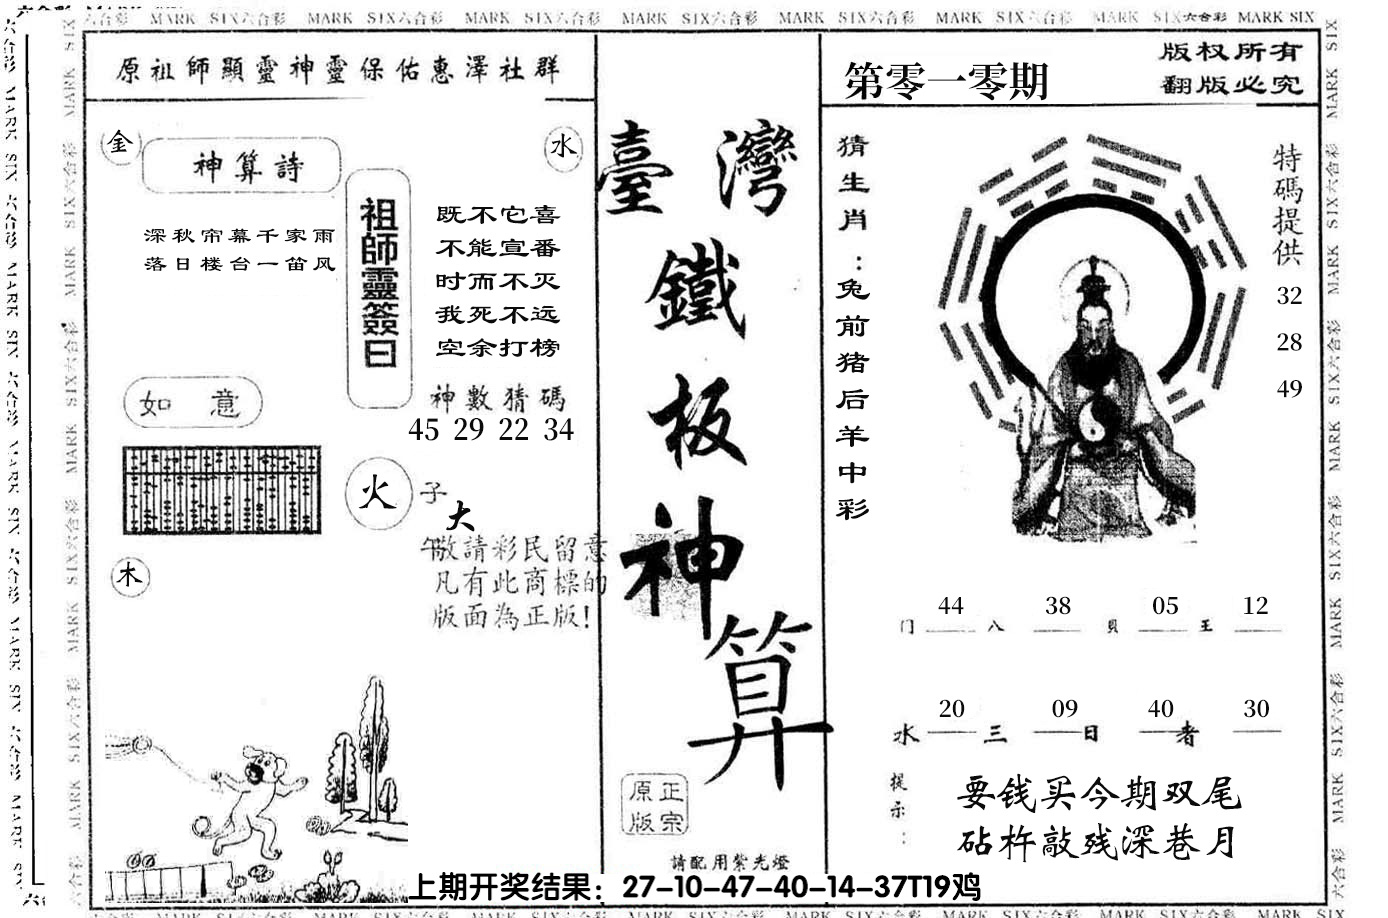 六合彩 MARK SIX六合彩 MARK SIX六合彩 MARK SIX六合彩 MARK SIX六合彩 MARK SIX六合彩 MARK SIX六合彩 MARK SIX六合彩 MARK SIX
原祖師顯靈神靈保佑惠澤社群
金
神算詩
水
深秋帘幕千家雨
落日楼台一笛风
祖師靈簽曰
既不它喜
不能宣番
时而不灭
我死不远
空余打榜
如意
神數猜碼
45 29 22 34
火
子
大
午
敬請彩民留意
凡有此商標的
版面為正版!
木
臺灣
鐵
板
神
算
原正
版宗
請配用紫光燈
第零一零期
版权所有
翻版必究
猜生肖:兔前猪后羊中彩
特碼提供
32
28
49
44 38 05 12
门 八 貝 王
20 09 40 30
水 三 日 者
提示:
要钱买今期双尾
砧杵敲残深巷月
上期开奖结果：27-10-47-40-14-37T19鸡